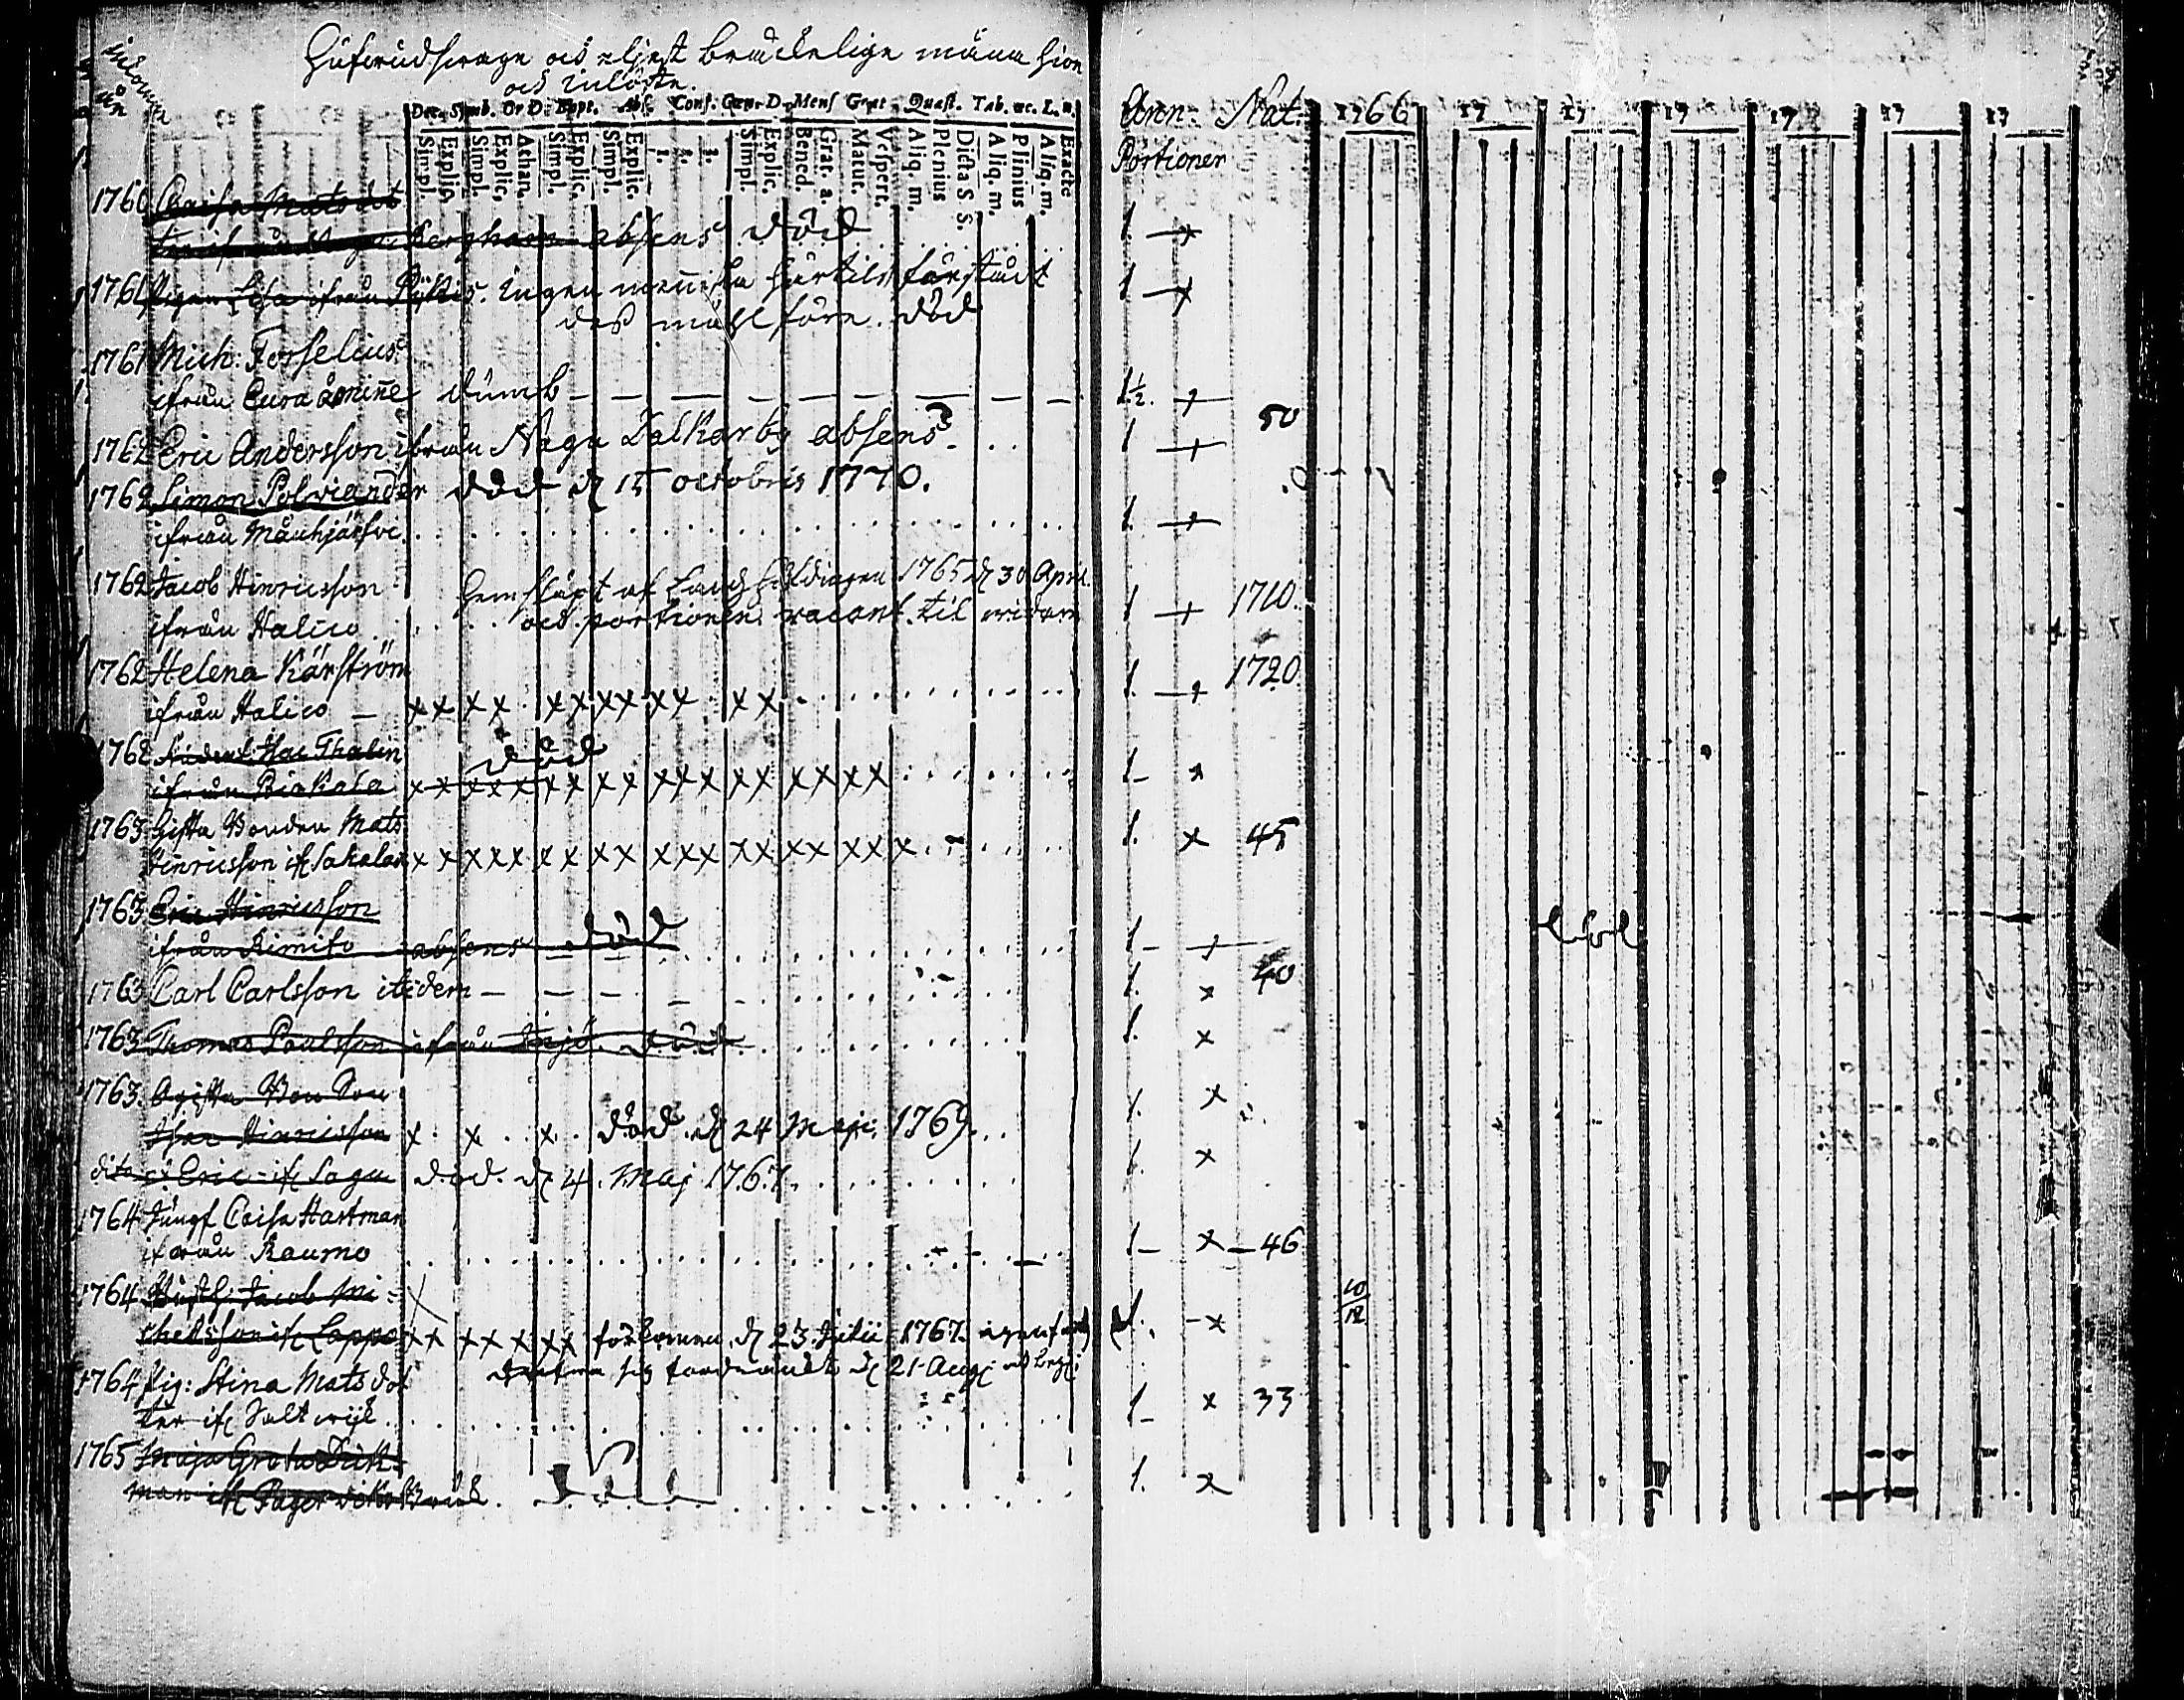 Hufwudswage och eljest bräckelige männ hion
och inlöste.
Inkomne
år
Dec. Symb. Or. D. Bapt. Abs. Conf. Cœn. D. Mens Grat Quæst. Tab. œc. L. n.
Simpl. Explic. Simpl. Explic. Athan. Simpl. Explic. Simpl. Explic. 1. 2. 3. Simpl. Explic. Bened. Grat. a. Matut. Vespert. Aliq. m. Plenius Dicta S S. Aliq. m. Plinius Aliq. m. Exacte
Ann: Nat. 1766 17 17 17 17 17 17
Portioner
1760 Caisa Mats dot
Berghamn absens död 1.
1761 Pigan Lisa ifrån Pÿkis. ingen menniska härtils förstådt 1
des målföre. död
1761 Mich: Forselius
ifrån Cura åminne dumb 1½. 50
1762 Eric Andersson ifrån Nagu Dalkarby absens 1
1762 Simon Polviander död d 15 octobris 1770.
ifrån Mauhjärfvi 1.
1762 Jacob Hinricsson hemsläpt af Landshöldingen 1765 d 30 April.
ifrån Halico och portionen vacant til 1 1710.
1762 Helena Kärström 1720
ifrån Halico x x x x x x x x x x x x 1.
1762 Thalin död
ifrån Biskala x x x x x x x x x x x x x x x x x x 1 x
1763 Gifta Bonden Mats
Hinricsson if Sakalax x x x x x x x x x x x x x x x x x x x 1. x 45
1763 Eric Hinricsson
ifrån Kimito absens död 1
1763 Carl Carlsson itidem 1. x 40
1763 Thomas Paulsson ifrån död 1. x
1763. Ogifta Bon Son
Hinricsson x x x död. d 24 Maji. 1769. 1. x
dito Eric if Sagu död. d 4. Maj 1767. 1. x
1764 Jungf Caisa Hartman
ifrån Raumo 1 x 46
1764 Jacob Mi=
chelsson if Lappo x x x x x x x förkommen d 23. Julii 1767. igenfådd 1. x 10/12
d 21 Aug:
1764 Pig: Stina Mats dot
ter if Saltwijk 1 x 33
1765 Maja Greta
man if Fagerviks Bruk. död 1. x